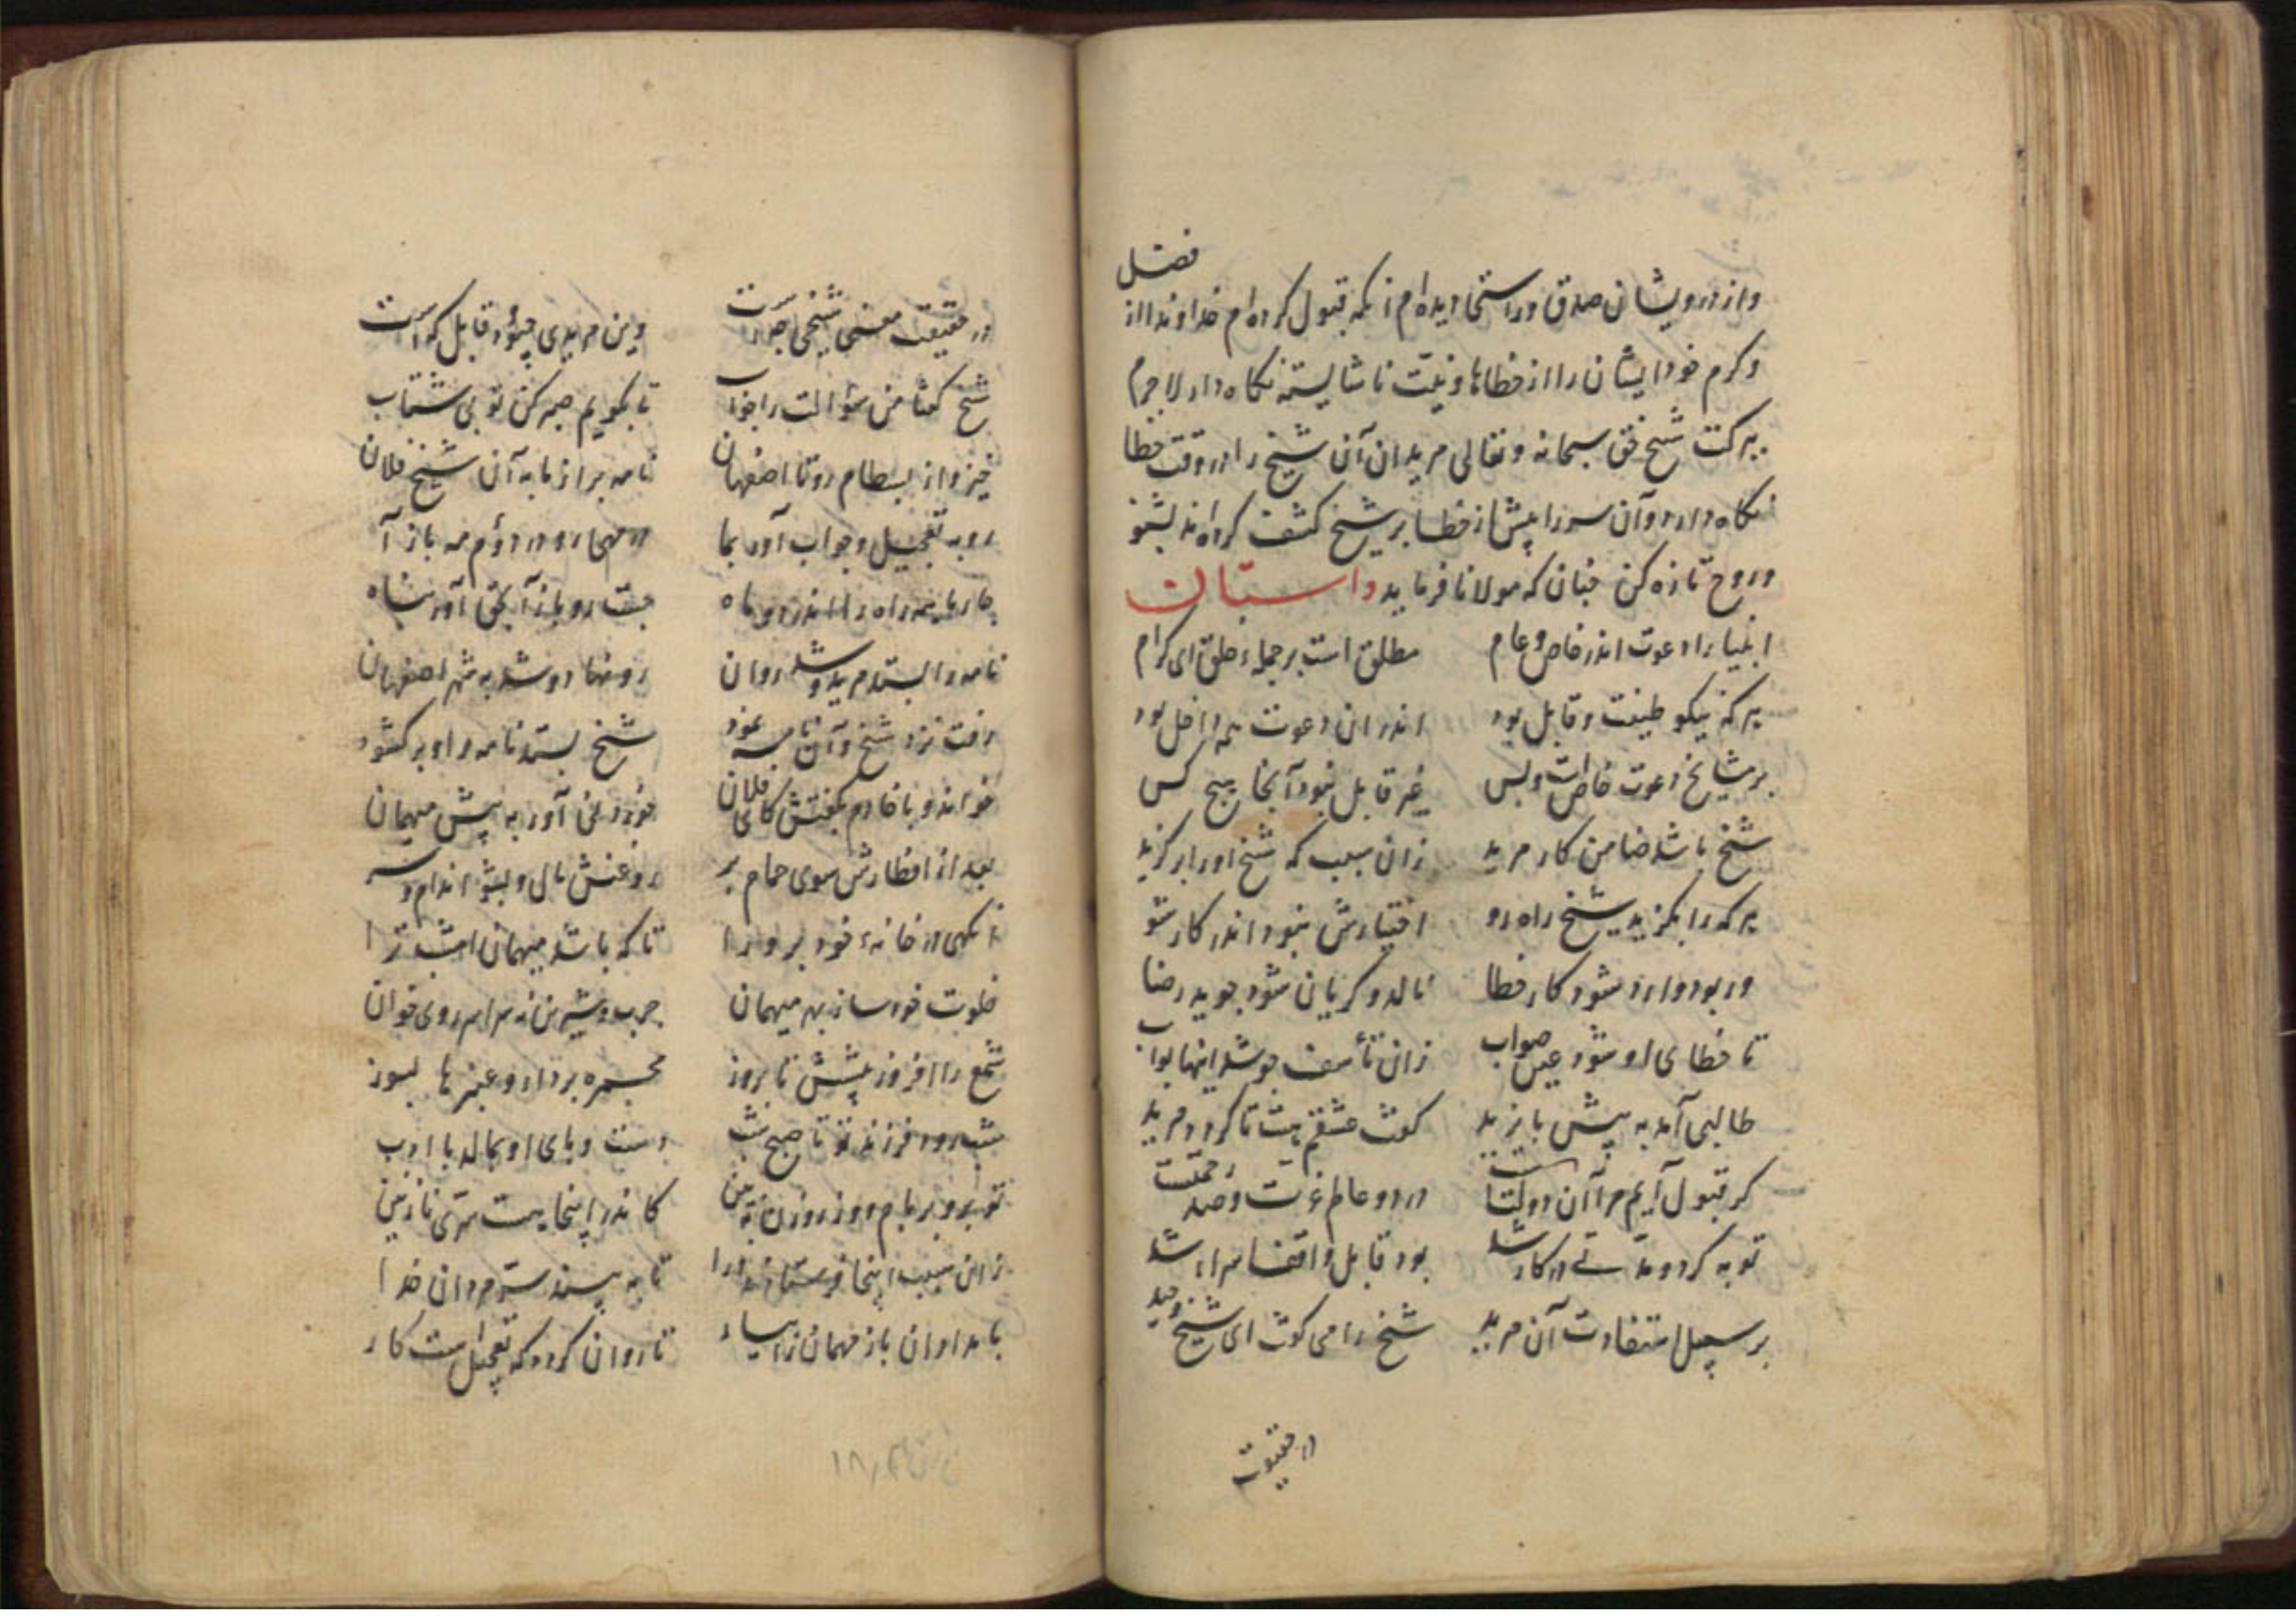 فضل
واز درویشان صدق و راستی دیده‌ام از همه قبول کرده‌ام خداوندا از
وکرم خود ایشان را از خطاها و نیت ناشایسته نکاه دار لاجرم
ببرکت شیخ حق سبحانه وتعالی مریدان آن شیخ را در وقت خطا
نکاه دارد و آن سر را پیش از خطا بر شیخ کشف کرداند بشنو
وروح تازه کن چنان که مولانا فرماید داستان
انبیا را دعوت اندر خاص و عام مطلق است بر جمله خلق ای کرام
هر که نیکو طینت و قابل بود اندران دعوت همه داخل بود
بر مشایخ دعوت خاص است وبس غیر قابل نبود آنجا هیچ کس
شیخ باشد ضامن کار مرید زان سبب که شیخ او را بر کزید
هر که را بکزید شیخ راه رو اختیارش نبود اندر کار شو
ور بود وارد شود کار خطا نالد و کریان شود جوید رضا
تا خطای او شود عین صواب زان تأسف جوشد اینها
طالبی آمد به پیش بایزید کفت عشقم هست تا کردم مرید
کر قبول آیم مرا آن دولتست در دو عالم عزت و صد رحمتست
توبه کرد و مدتی در کار شد بود قابل واقف اسرار شد
بر سبیل استفادت آن مرید شیخ را می کفت ای شیخ وحید
در حقیقت
در حقیقت معنی شیخی چراست وین مریدی چبود و قابل کراست
شیخ کفتا من سؤالت را جواب تا بکویم صبر کن تو بی شتاب
خیز واز بسطام رو تا اصفهان نامه بر از ما به آن شیخ فلان
رو به تعجیل وجواب آور بما در مهی رو در دوم مه باز آ
چار ماهه راه را اندر دو ماه جفت رو باز آ بحق آور پناه
نامه را بستد مرید و شد روان روزها رو شد به شهر اصفهان
رفت نزد شیخ و آن نامه نمود شیخ بستد نامه را و بر کشود
خواند و با خادم بکفتش کای فلان خوردنی آور به پیش میهمان
بعد از افطارش سوی حمام بر روغنش مال و بشو اندام و سر
آنکهی در خانهٔ خود بر ورا تا که باشد میهمان امشب ترا
خلوت خود ساز بهر میهمان چرب و شیرین نه مر او را روی خوان
شمع را افروز پیشش تا بروز مجمره بردار و عنبرها بسوز
شب رود فرزند تو تا صبح شب دست و پای او بمالد با ادب
تو برو بر بام و از روزن ببین کاندر اینجا هست سری نازنین
زان سبب اینجا فرستادند ورا تا به بیند ستر مردان خدا
بامدادان باز مهمان را بیار تا روان کردد که تعجیل است کار